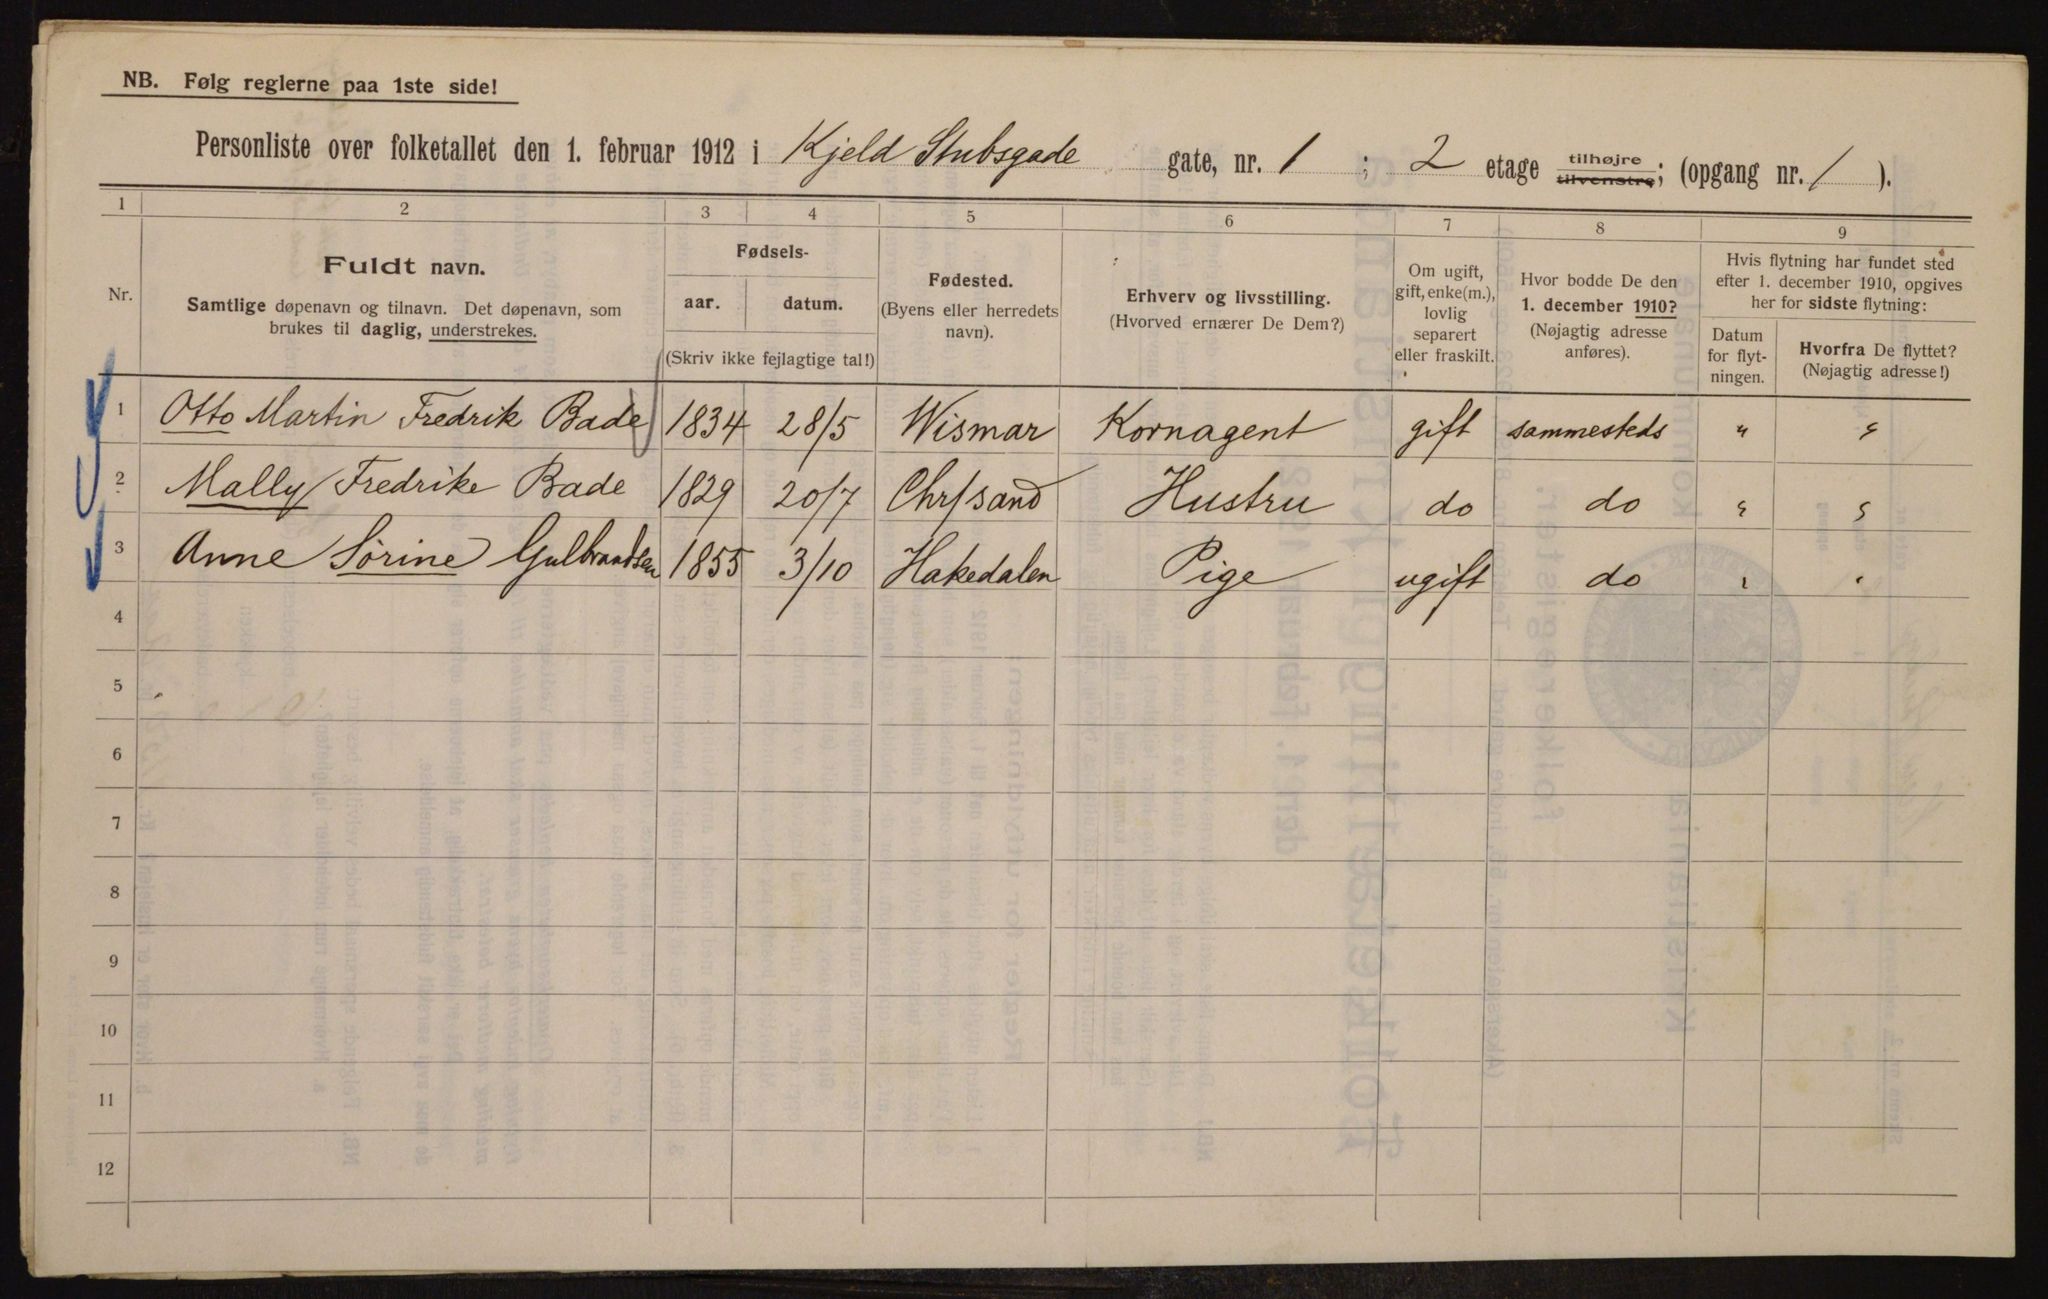 NB. Følg reglerne paa 1ste side!
Personliste over folketallet den 1. februar 1912 i Kjeld Stubsgade gate, nr. 1 ; 2 etage tilhøjre tilvenstre; (opgang nr. 1 ).
1 2 3 4 5 6 7 8 9
Nr.
Fuldt navn.
Samtlige døpenavn og tilnavn. Det døpenavn, som
brukes til daglig, understrekes.
Fødsels-
aar. datum.
(Skriv ikke fejlagtige tal!)
Fødested.
(Byens eller herredets
navn).
Erhverv og livsstilling.
(Hvorved ernærer De Dem?)
Om ugift,
gift, enke(m.),
lovlig
separert
eller fraskilt.
Hvor bodde De den
1. december 1910?
(Nøjagtig adresse
anføres).
Hvis flytning har fundet sted
efter 1. december 1910, opgives
her for sidste flytning:
Datum
for flyt-
ningen.
Hvorfra De flyttet?
(Nøjagtig adresse!)
1 Otto Martin Fredrik Bade 1834 28/5 Wismar Kornagent gift sammesteds " "
2 Mally Fredrike Bade 1829 20/7 Chr/sand Hustru do do " "
3 Anne Sørine Gulbrandsen 1855 3/10 Hakedalen Pige ugift do " "
4
5
6
7
8
9
10
11
12